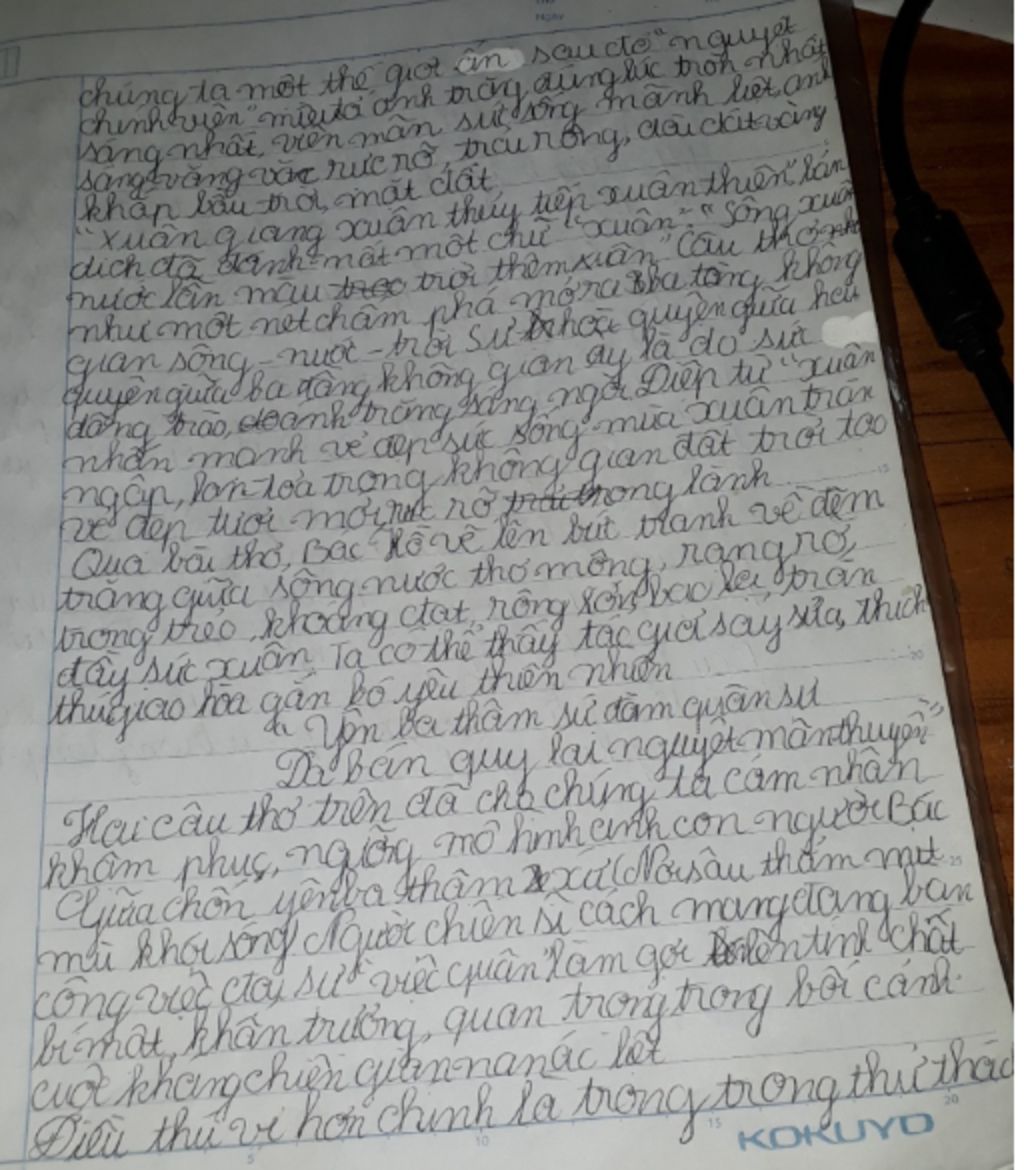 chúng ta một thế giới ấn sau đó "nguyệt
chính viên" miêu tả ánh trăng đúng lúc tròn nhất
sáng nhất, viên mãn sức sống mãnh liệt, ánh
sáng vàng rực rỡ, trải rộng, dài dát vàng
khắp bầu trời, mặt đất
"xuân giang xuân thủy tiếp xuân thiên" bản
dịch đã đánh mất một chữ "xuân" "Sông xuân
nước lẫn màu trời thêm xuân" Câu thơ
như một nét chấm phá mở ra ba tầng không
gian sông - nước - trời Sự hòa quyện giữa hòa
quyện giữa ba tầng không gian ấy là do sức
dâng trào, do ánh trăng sáng ngời Điệp từ "xuân
nhấn mạnh vẻ đẹp sức sống mùa xuân tràn
ngập, lan tỏa trong không gian đất trời tạo
vẻ đẹp tươi mới, rực rỡ trong lành
Qua bài thơ, Bác Hồ vẽ lên bức tranh về đêm
trăng giữa sông nước thơ mộng, rạng rỡ,
trong trẻo, khoáng đạt, rộng lớn, bao la, tràn
đầy sức xuân. Ta có thể thấy tác giả say sưa, thích
thú giao hòa gắn bó yêu thiên nhiên
"Yên ba thâm sứ đàm quân sự
Dạ bán quy lai nguyệt mãn thuyền"
Hai câu thơ trên đã cho chúng ta cảm nhận
khâm phục, ngưỡng mộ hình ảnh con người Bác
Giữa chốn yên ba thâm xứ (Nơi sâu thẳm mịt
mù khói sóng) Người chiến sĩ cách mạng đang bàn
công việc đại sự "việc quân" làm gợi lên tính chất
bí mật, khẩn trương, quan trọng trong bối cảnh
cuộc kháng chiến gian nan ác liệt
Điều thú vị hơn chính là trong trong thử thác
KOKUYO
5 10 15 20
15
20
25